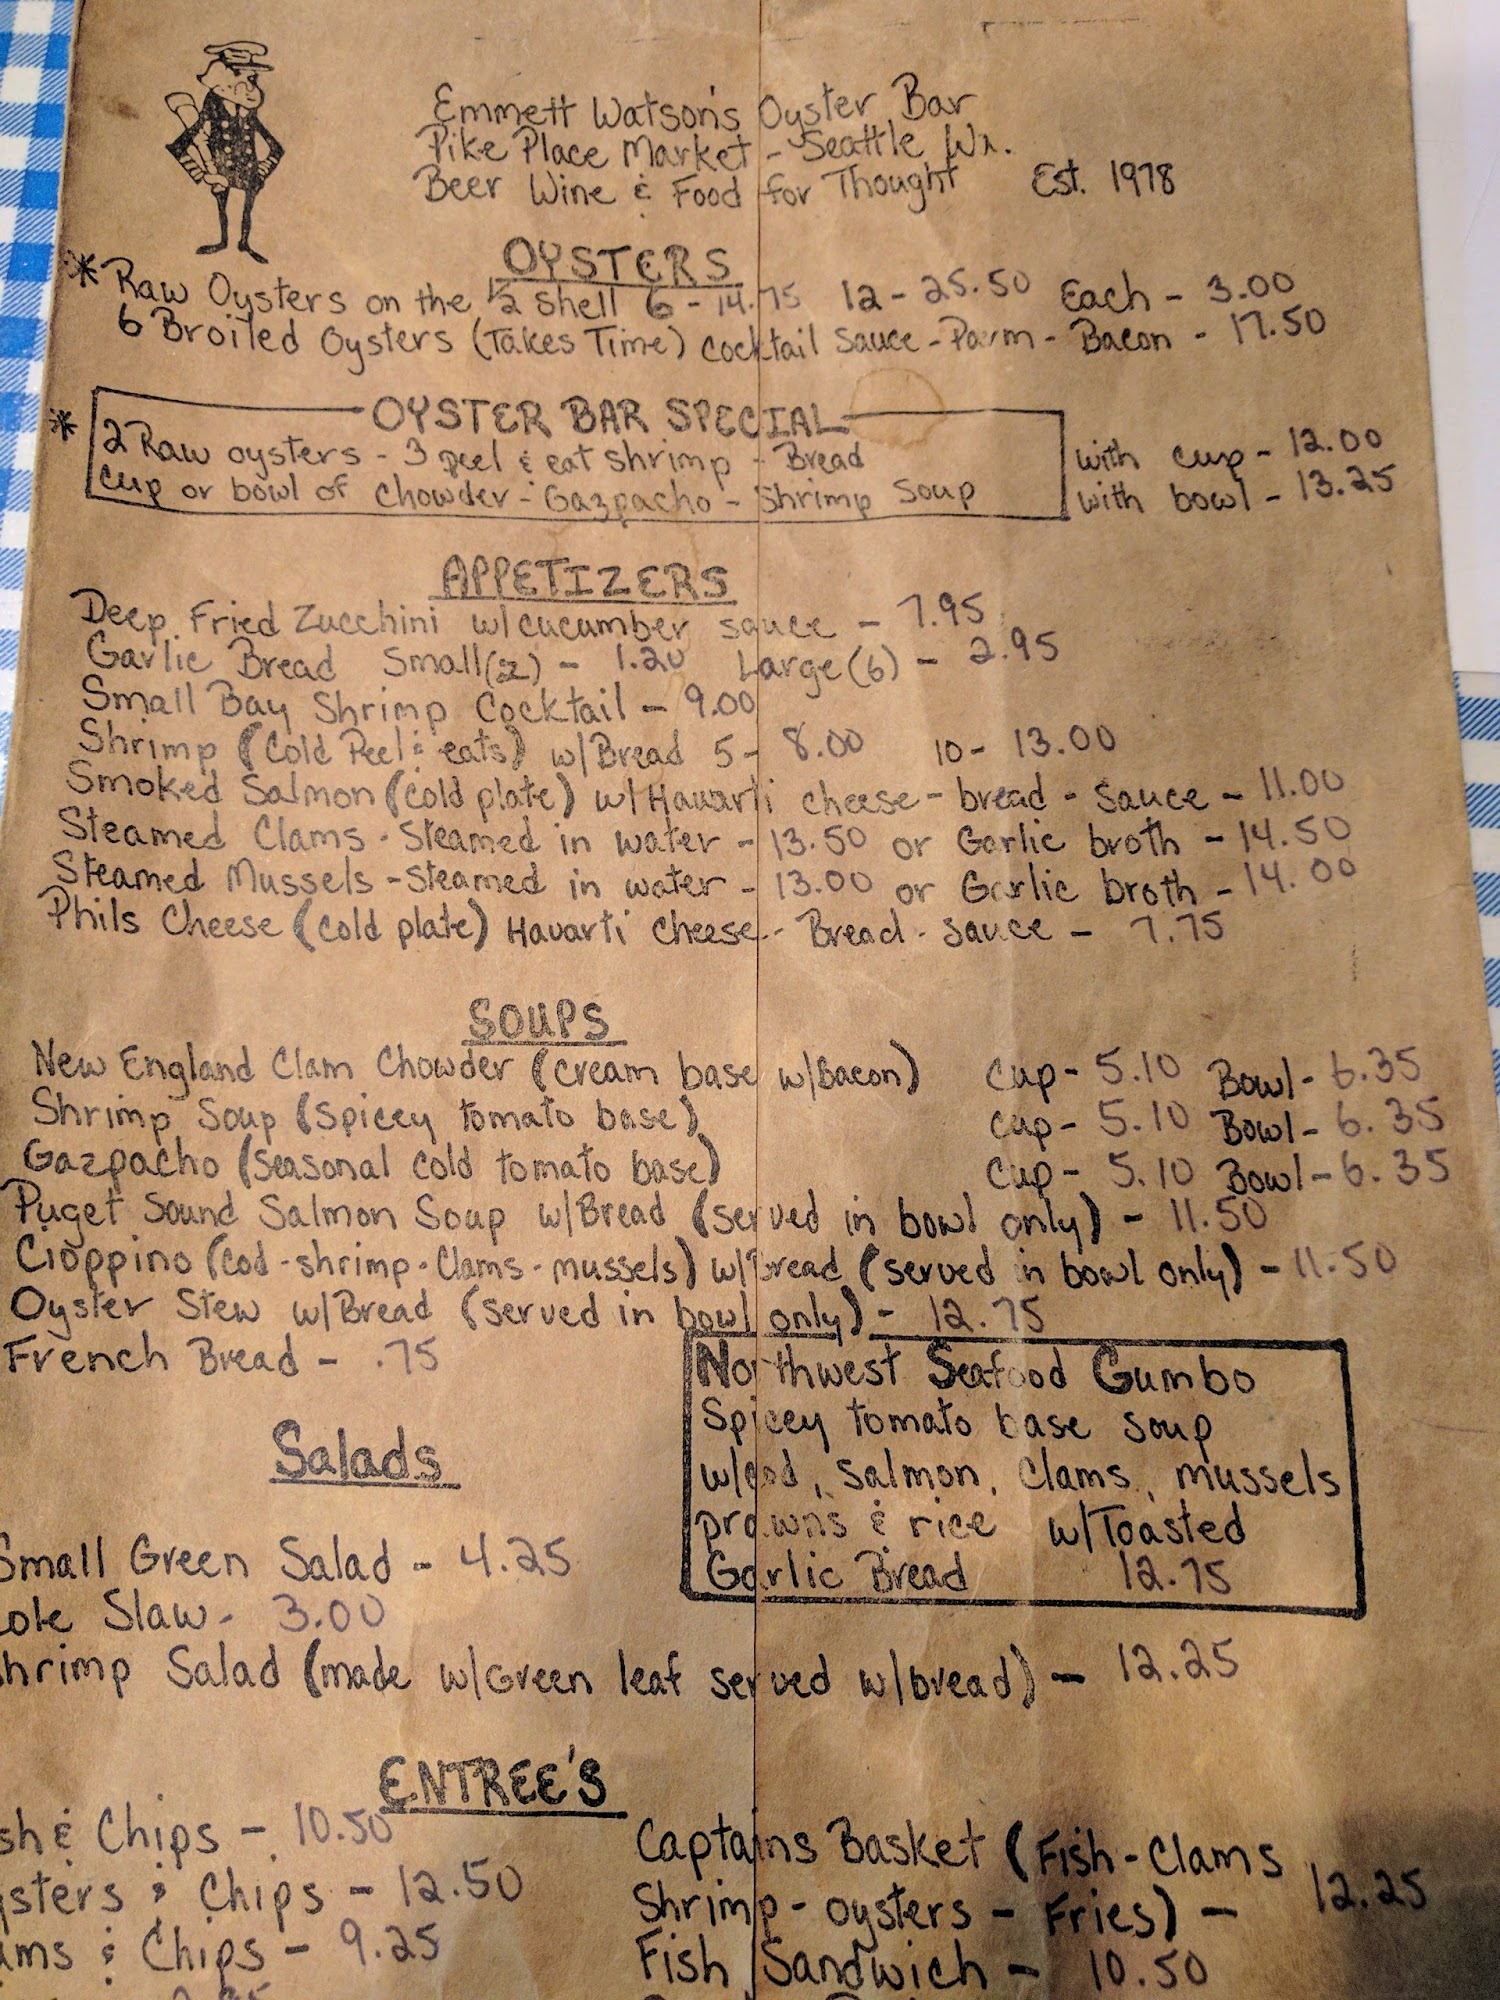 Emmett Watson's Oyster Bar
Pike Place Market - Seattle Wa.
Beer Wine & Food for Thought Est. 1978
OYSTERS
* Raw Oysters on the 1/2 Shell 6 - 14.75 12 - 25.50 Each - 3.00
6 Broiled Oysters (Takes Time) Cocktail Sauce - Parm - Bacon - 17.50
* OYSTER BAR SPECIAL
2 Raw oysters - 3 peel & eat shrimp - Bread with cup - 12.00
cup or bowl of chowder - Gazpacho - Shrimp Soup with bowl - 13.25
APPETIZERS
Deep Fried Zucchini w/cucumber sauce - 7.95
Garlic Bread Small (2) - 1.20 Large (6) - 2.95
Small Bay Shrimp Cocktail - 9.00
Shrimp (Cold Peel & eats) w/Bread 5 - 8.00 10 - 13.00
Smoked Salmon (cold plate) w/Havarti cheese - bread - sauce - 11.00
Steamed Clams - Steamed in water - 13.50 or Garlic broth - 14.50
Steamed Mussels - Steamed in water - 13.00 or Garlic broth - 14.00
Phils Cheese (cold plate) Havarti cheese - Bread - sauce - 7.75
SOUPS
New England Clam Chowder (cream base w/Bacon) Cup - 5.10 Bowl - 6.35
Shrimp Soup (Spicey tomato base) Cup - 5.10 Bowl - 6.35
Gazpacho (seasonal cold tomato base) Cup - 5.10 Bowl - 6.35
Puget Sound Salmon Soup w/Bread (served in bowl only) - 11.50
Cioppino (Cod - shrimp - Clams - mussels) w/Bread (served in bowl only) - 11.50
Oyster Stew w/Bread (served in bowl only) - 12.75
French Bread - .75
Northwest Seafood Gumbo
Spicey tomato base soup
w/cod, salmon, clams, mussels
prawns & rice w/Toasted
Garlic Bread 12.75
Salads
Small Green Salad - 4.25
Cole Slaw - 3.00
Shrimp Salad (made w/Green leaf served w/bread) - 12.25
ENTREE'S
sh & Chips - 10.50
ysters & Chips - 12.50
ams & Chips - 9.25
Captains Basket (Fish - Clams
Shrimp - oysters - Fries) - 12.25
Fish Sandwich - 10.50